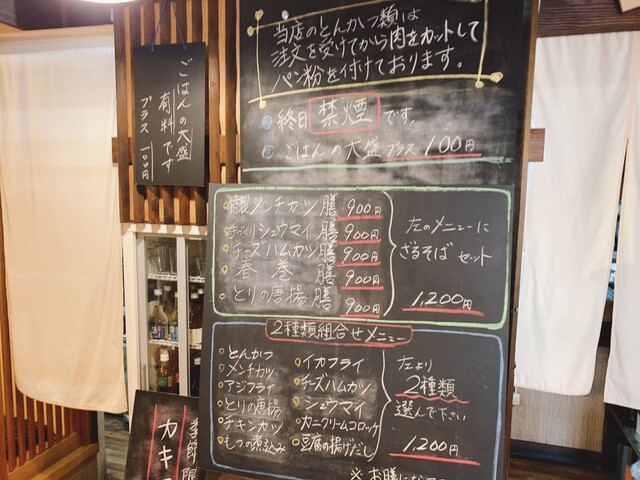 当店のとんかつ類は
注文を受けてから肉をカットして
パン粉を付けております。
終日 禁煙 です。
ごはんの大盛 プラス 100円
ごはんの大盛
有料です
プラス 一〇〇円
特製メンチカツ膳 900円
手づくりシュウマイ膳 900円
チーズハムカツ膳 900円
春巻膳 900円
とりの唐揚膳 900円
左のメニューに
ざるそば セット
1,200円
2種類組合せメニュー
とんかつ
メンチカツ
アジフライ
とりの唐揚
チキンカツ
もつの煮込み
イカフライ
チーズハムカツ
シュウマイ
カニクリームコロッケ
豆腐の揚げだし
左より
2種類
選んで下さい
1,200円
※お膳に
季節限
カキ